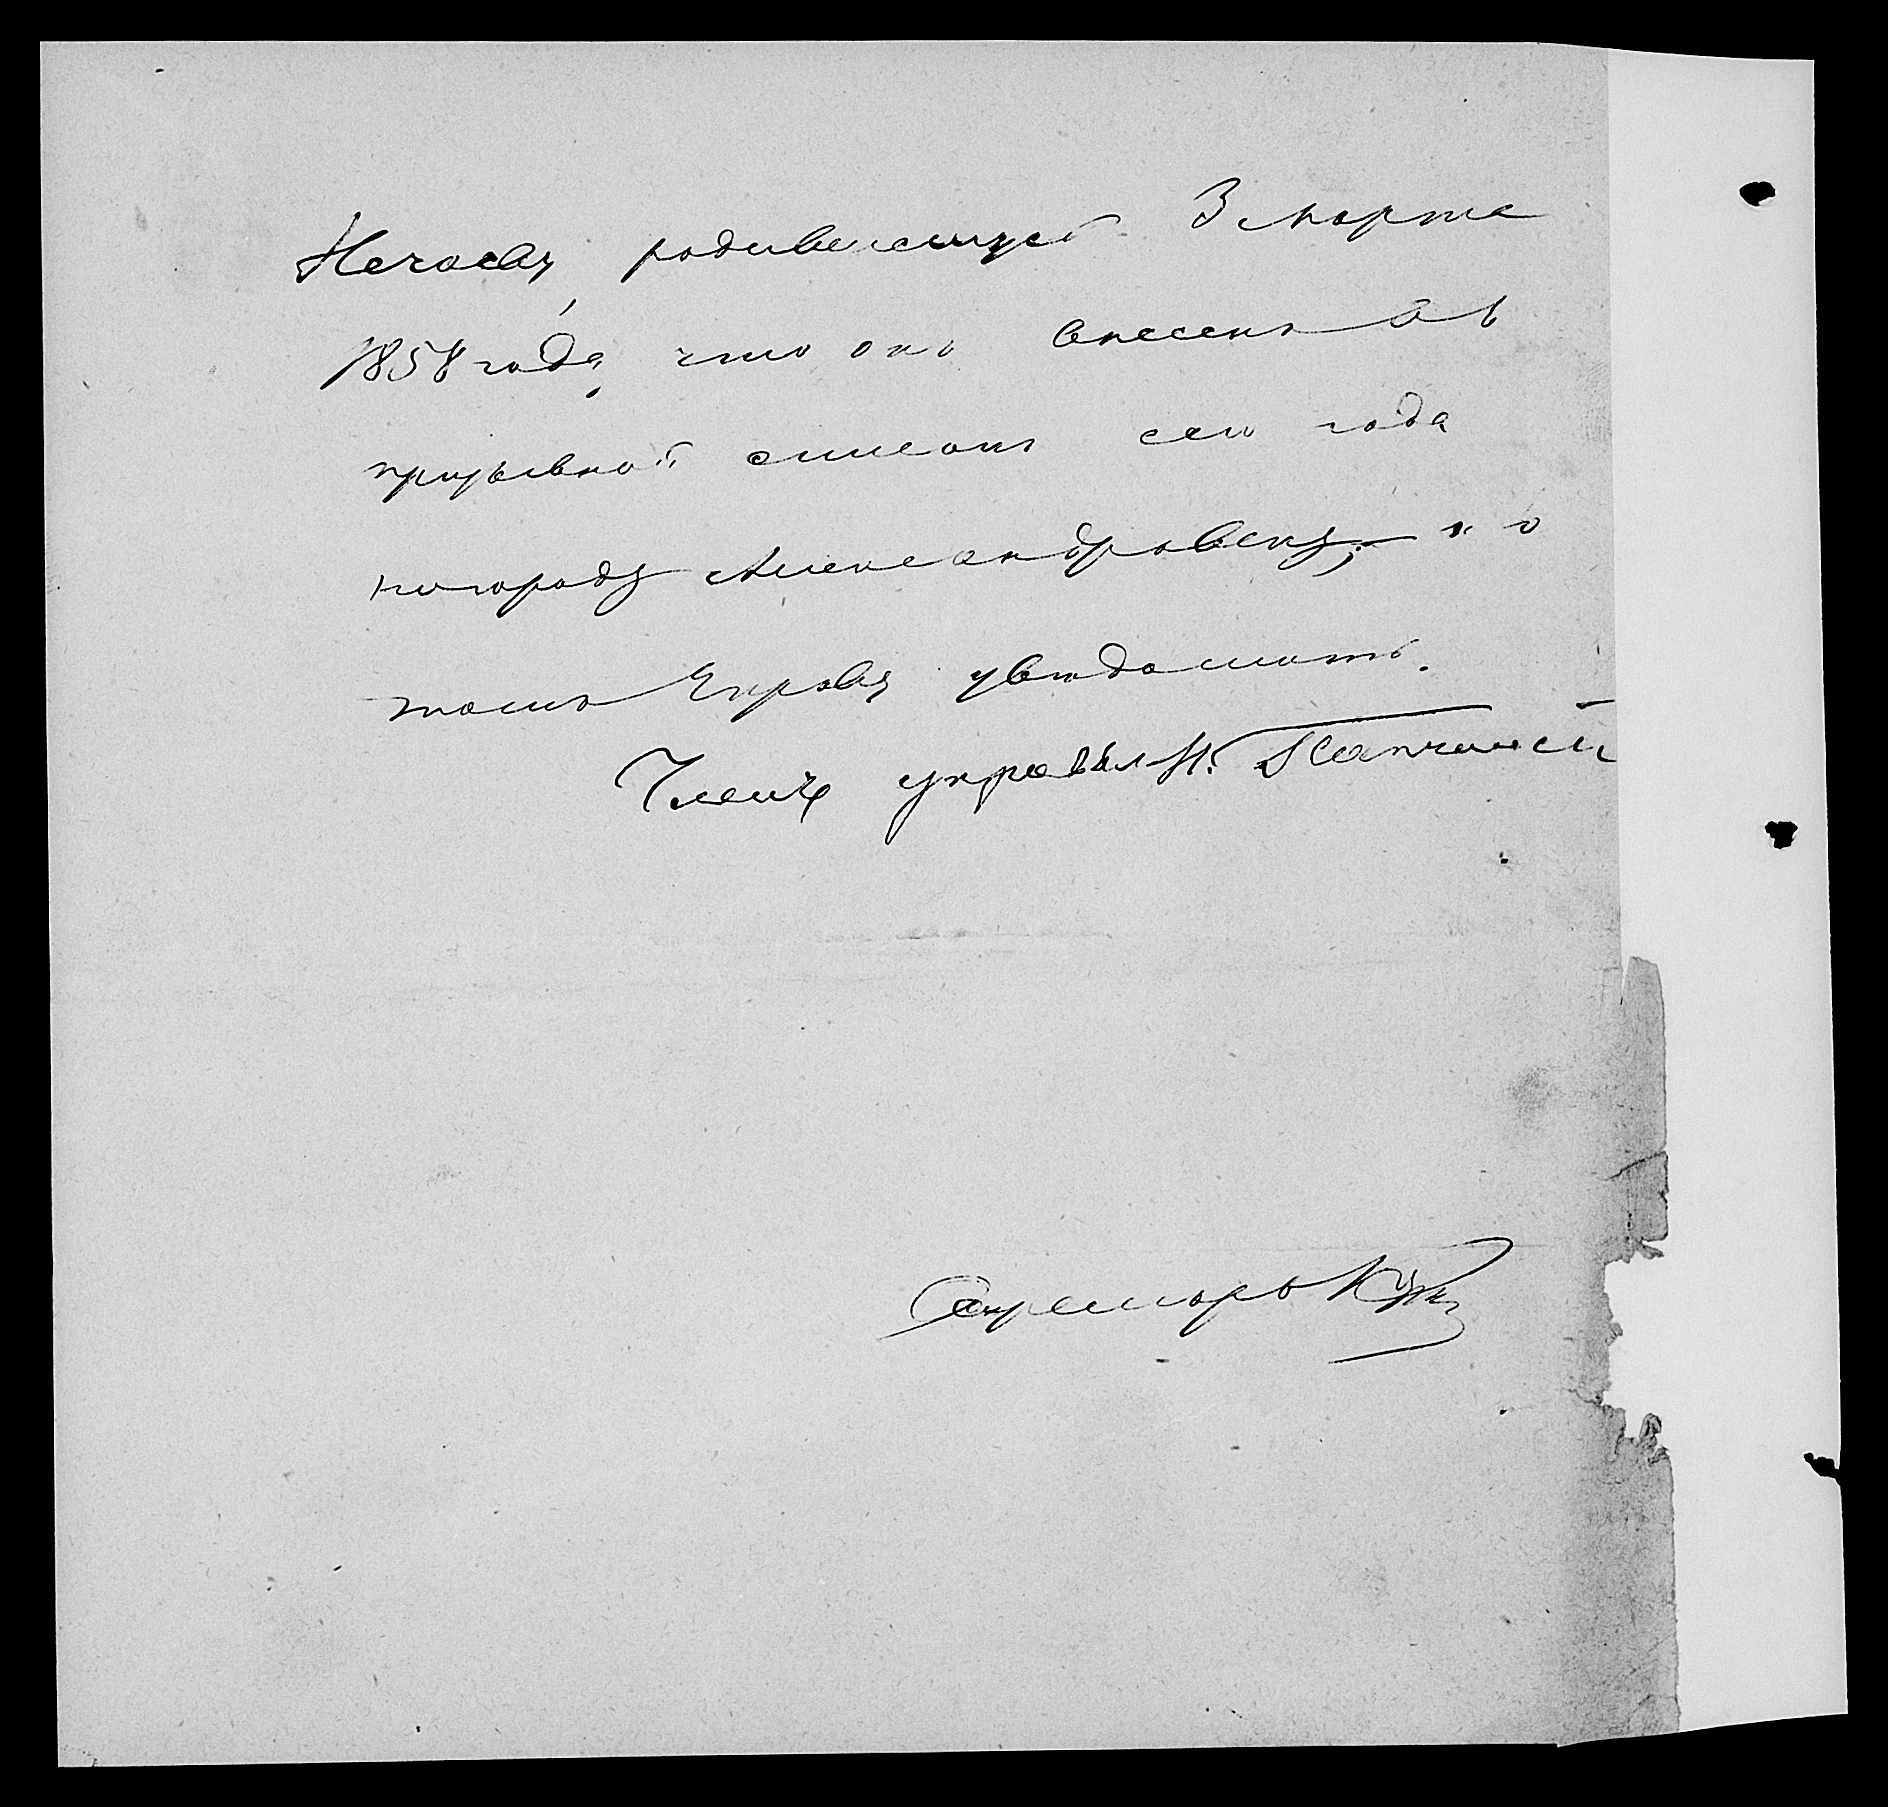 Нечаеву, родившемуся 3 марта
1858 года, что онъ внесенъ въ
призывной списокъ сего года
по городу Александровску; и о
томъ Управу увѣдомить.
Членъ управы Н.
Секретарь